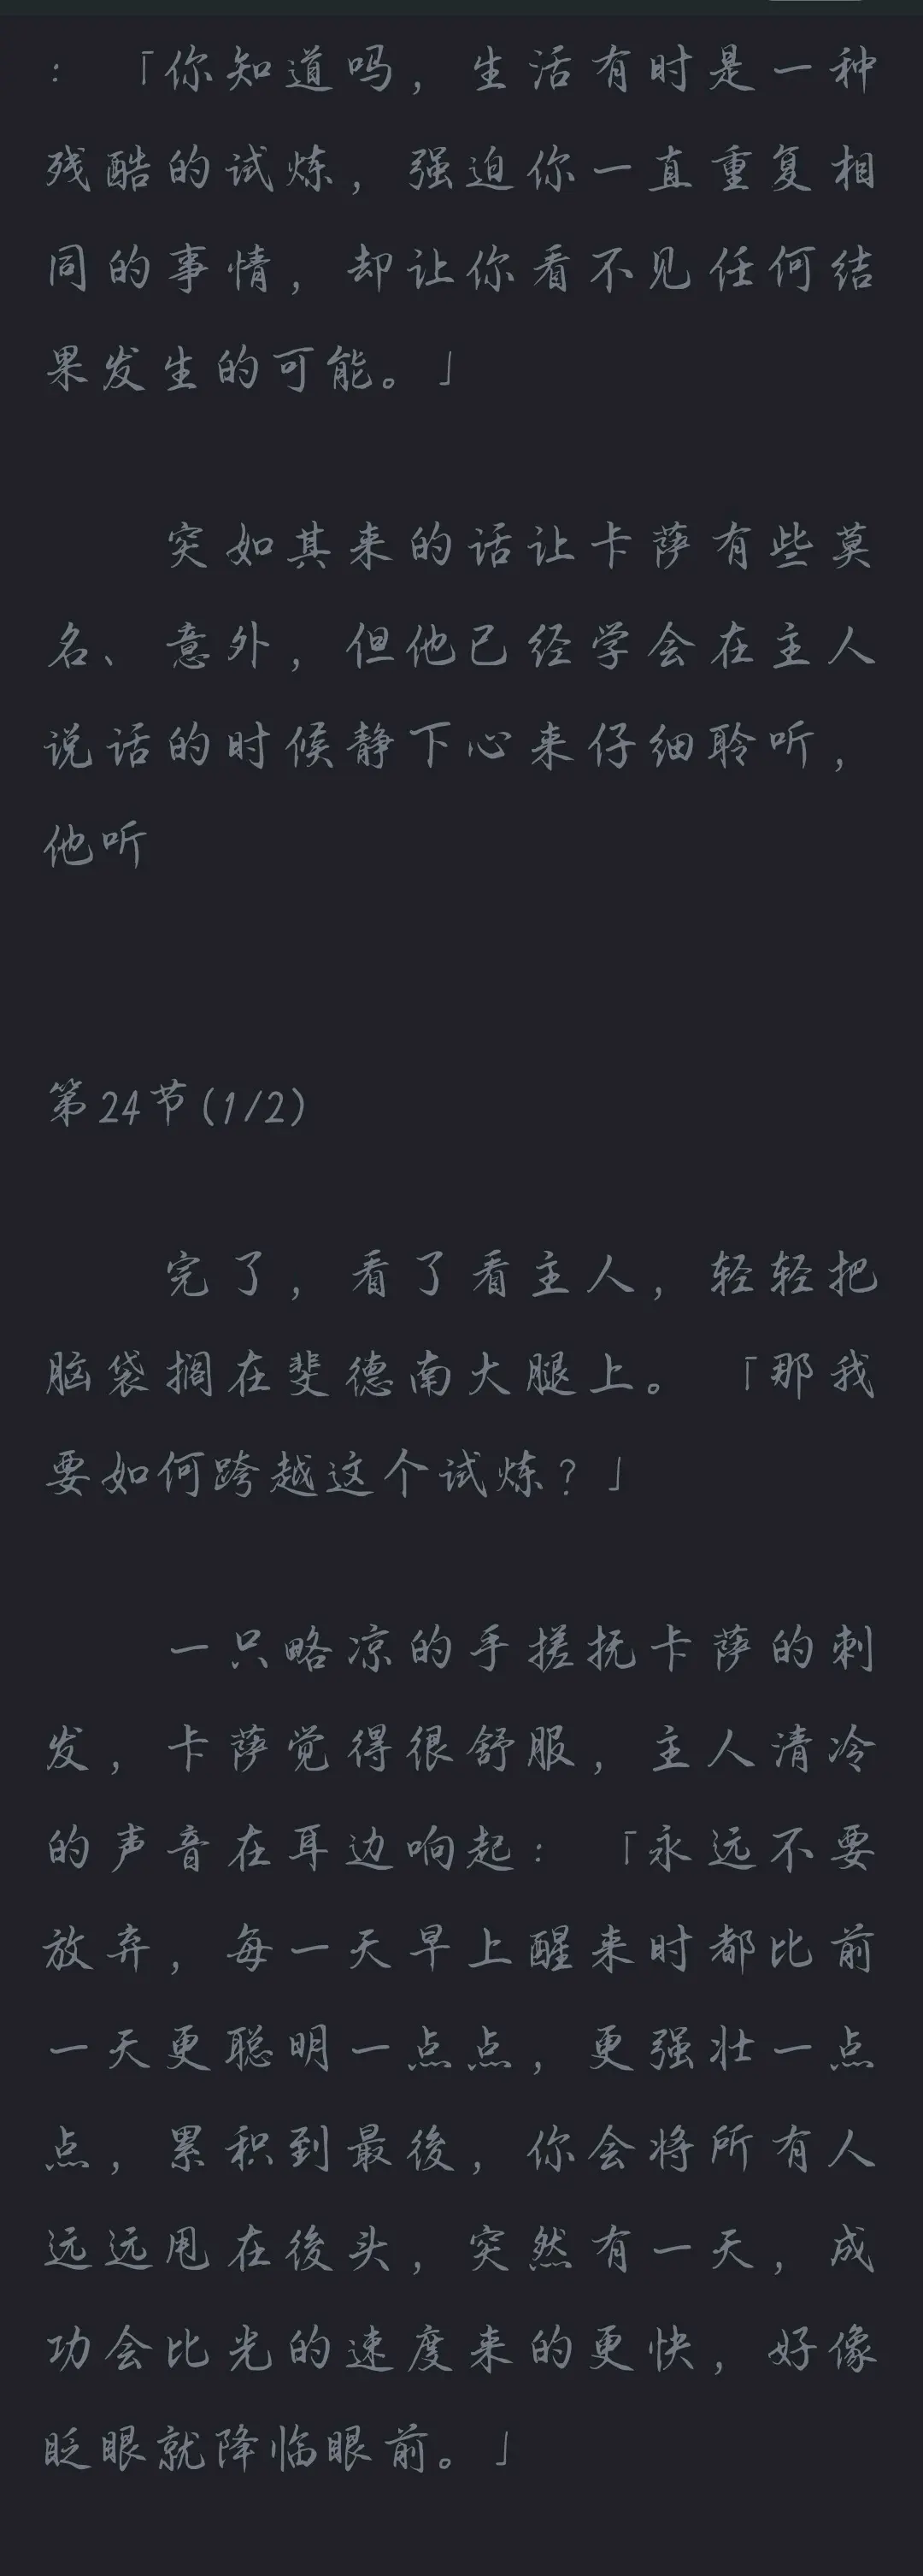 ：「你知道吗，生活有时是一种
残酷的试炼，强迫你一直重复相
同的事情，却让你看不见任何结
果发生的可能。」
突如其来的话让卡萨有些莫
名、意外，但他已经学会在主人
说话的时候静下心来仔细聆听，
他听
第24节(1/2)
完了，看了看主人，轻轻把
脑袋搁在斐德南大腿上。「那我
要如何跨越这个试炼？」
一只略凉的手搓抚卡萨的刺
发，卡萨觉得很舒服，主人清冷
的声音在耳边响起：「永远不要
放弃，每一天早上醒来时都比前
一天更聪明一点点，更强壮一点
点，累积到最後，你会将所有人
远远甩在後头，突然有一天，成
功会比光的速度来的更快，好像
眨眼就降临眼前。」